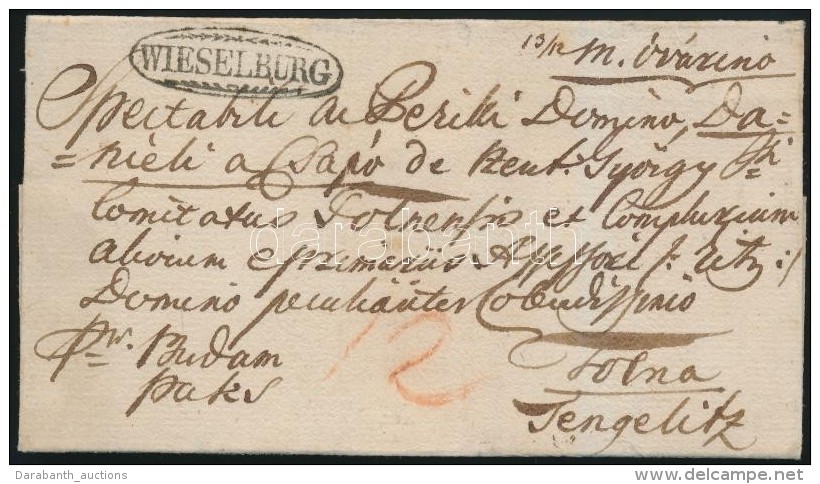 WIESELBURG
13/12 M. óvárino
Spectabili ac Perilli Domino, Da=
=nieli a Csapó de Szent György
Comitatus Tolnensis et Complurium
aliorum e primariis Assessori
Domino peculiariter Colendissimo
pr. Budam
Paks
12
Tolna
Tengelitz
darabanth
Darabanth_auctions
www.delcampe.net